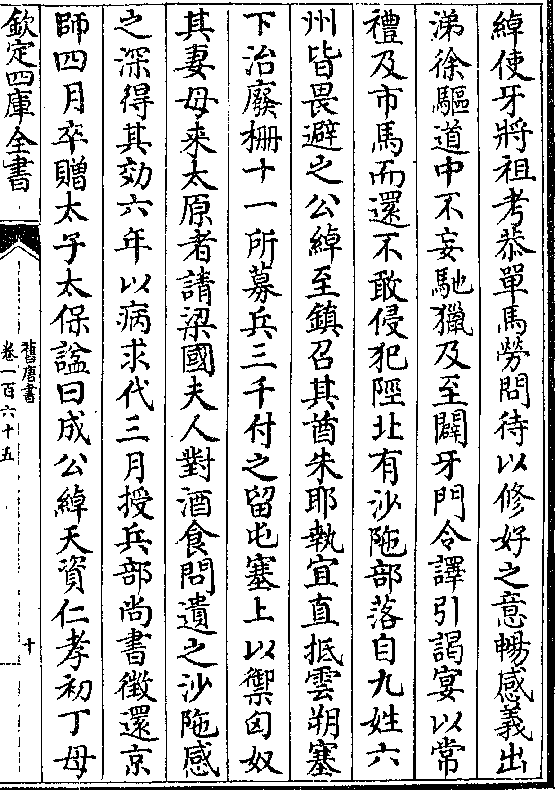 綽使牙將祖考恭單馬勞問待以修好之意暢感義出
涕徐驅道中不妄馳獵及至闢牙門令譯引謁宴以常
禮及市馬而還不敢侵犯陘北有沙陁部落自九姓六
州皆畏避之公綽至鎮召其酋朱耶執宜直抵雲朔塞
下治廢柵十一所募兵三千付之留屯塞上以禦匈奴
其妻母来太原者請梁國夫人對酒食問遺之沙陁感
之深得其効六年以病求代三月授兵部尚書徵還京
師四月卒贈太子太保諡曰成公綽天資仁孝初丁母
欽定四庫全書
舊唐書
卷一百六十五
十